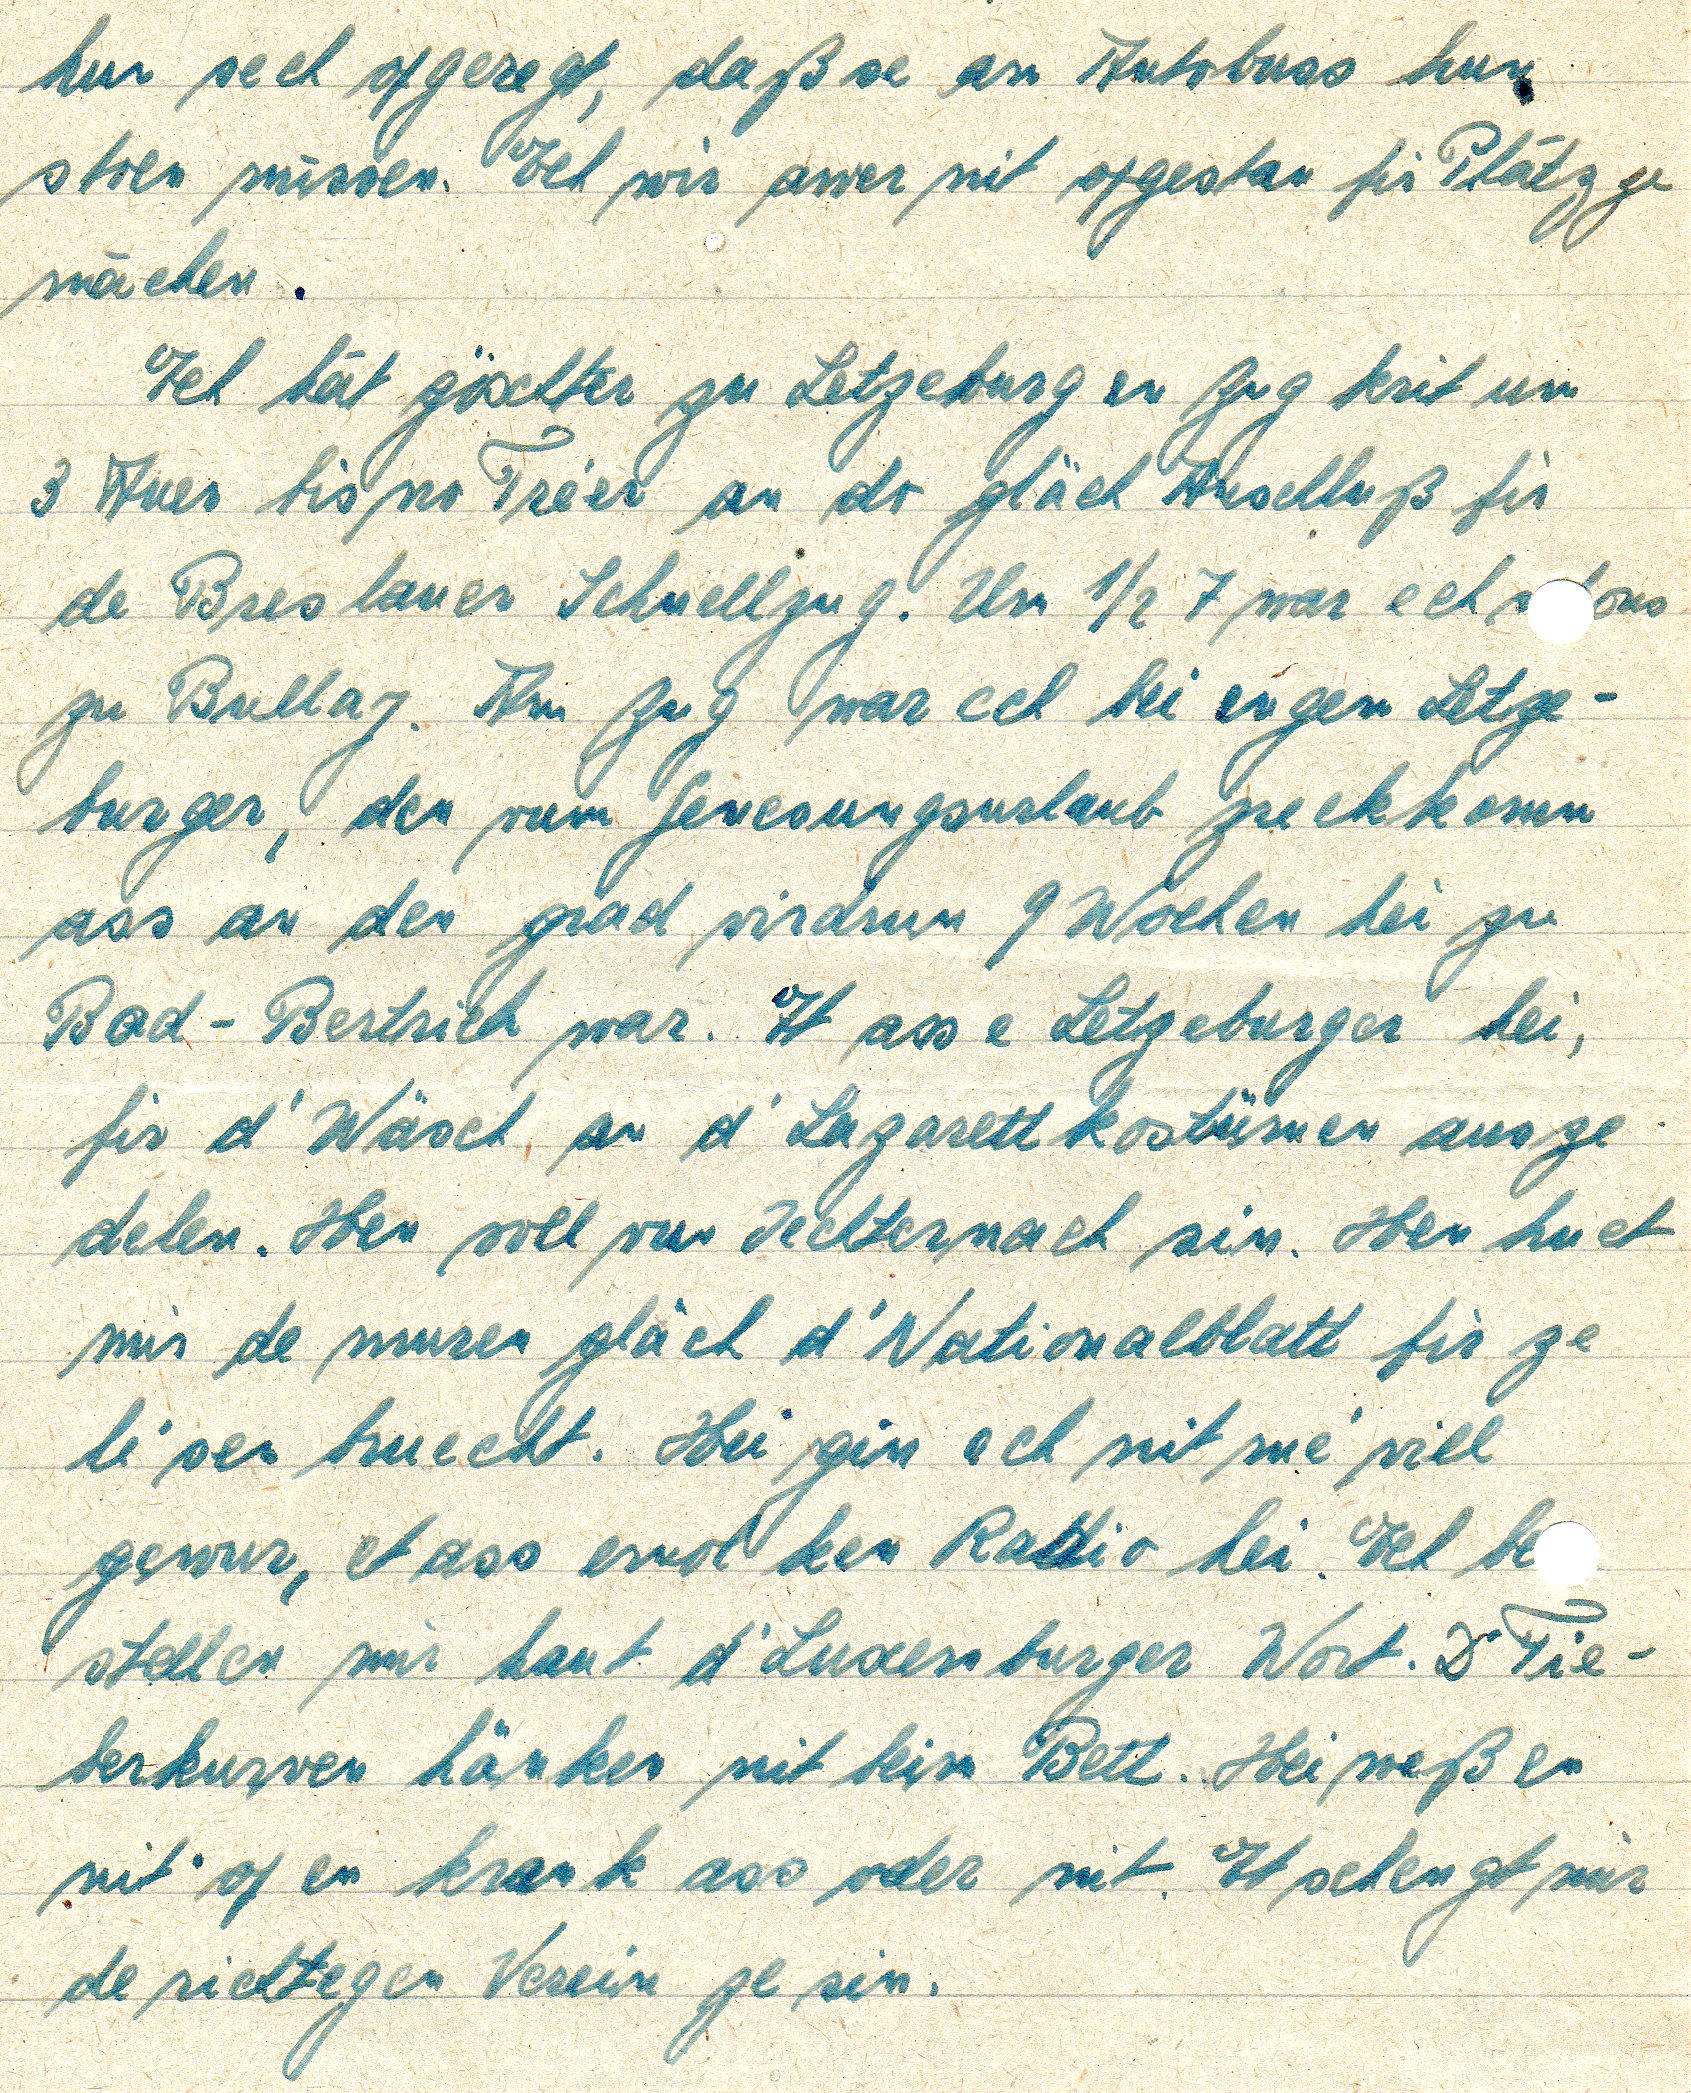 hun sech opgeregt, daß se am Autobuss hun
stoen mussen. Ech wir awer nit opgestan fir Plâtz ze
mâchen.
Ech hät gëschter zu Letzeburg en Zug krit um
3 Auer bis no Tréier an do gläch Anschluß fir
de Breslauer Schnellzug. Um 1/2 7 war ech
zu Bullay. Am Zug war ech bei engem Letze-
burger, den vum Genesungsurlaub zreckkomm
ass an den grad virdrun 9 Wochen hei zu
Bad-Bertrich war. Et ass e Letzeburger hei,
fir d'Wäsch an d'Lazarettkostümen ausze
delen. Hen soll vun Iechternach sin. Hen huet
mir de muren gläch d'Nationalblatt fir ze
liésen bruecht. Hei gin ech nit mé vill
gewur, et ass emol ken Radio hei. Ech be
stellen mir haut d'Luxemburger Wort. D'Fie-
berkurven hänken nit beim Bett. Hei weß en
nit op en krank ass oder nit. Et schengt mir
de richtegen Verein ze sin.